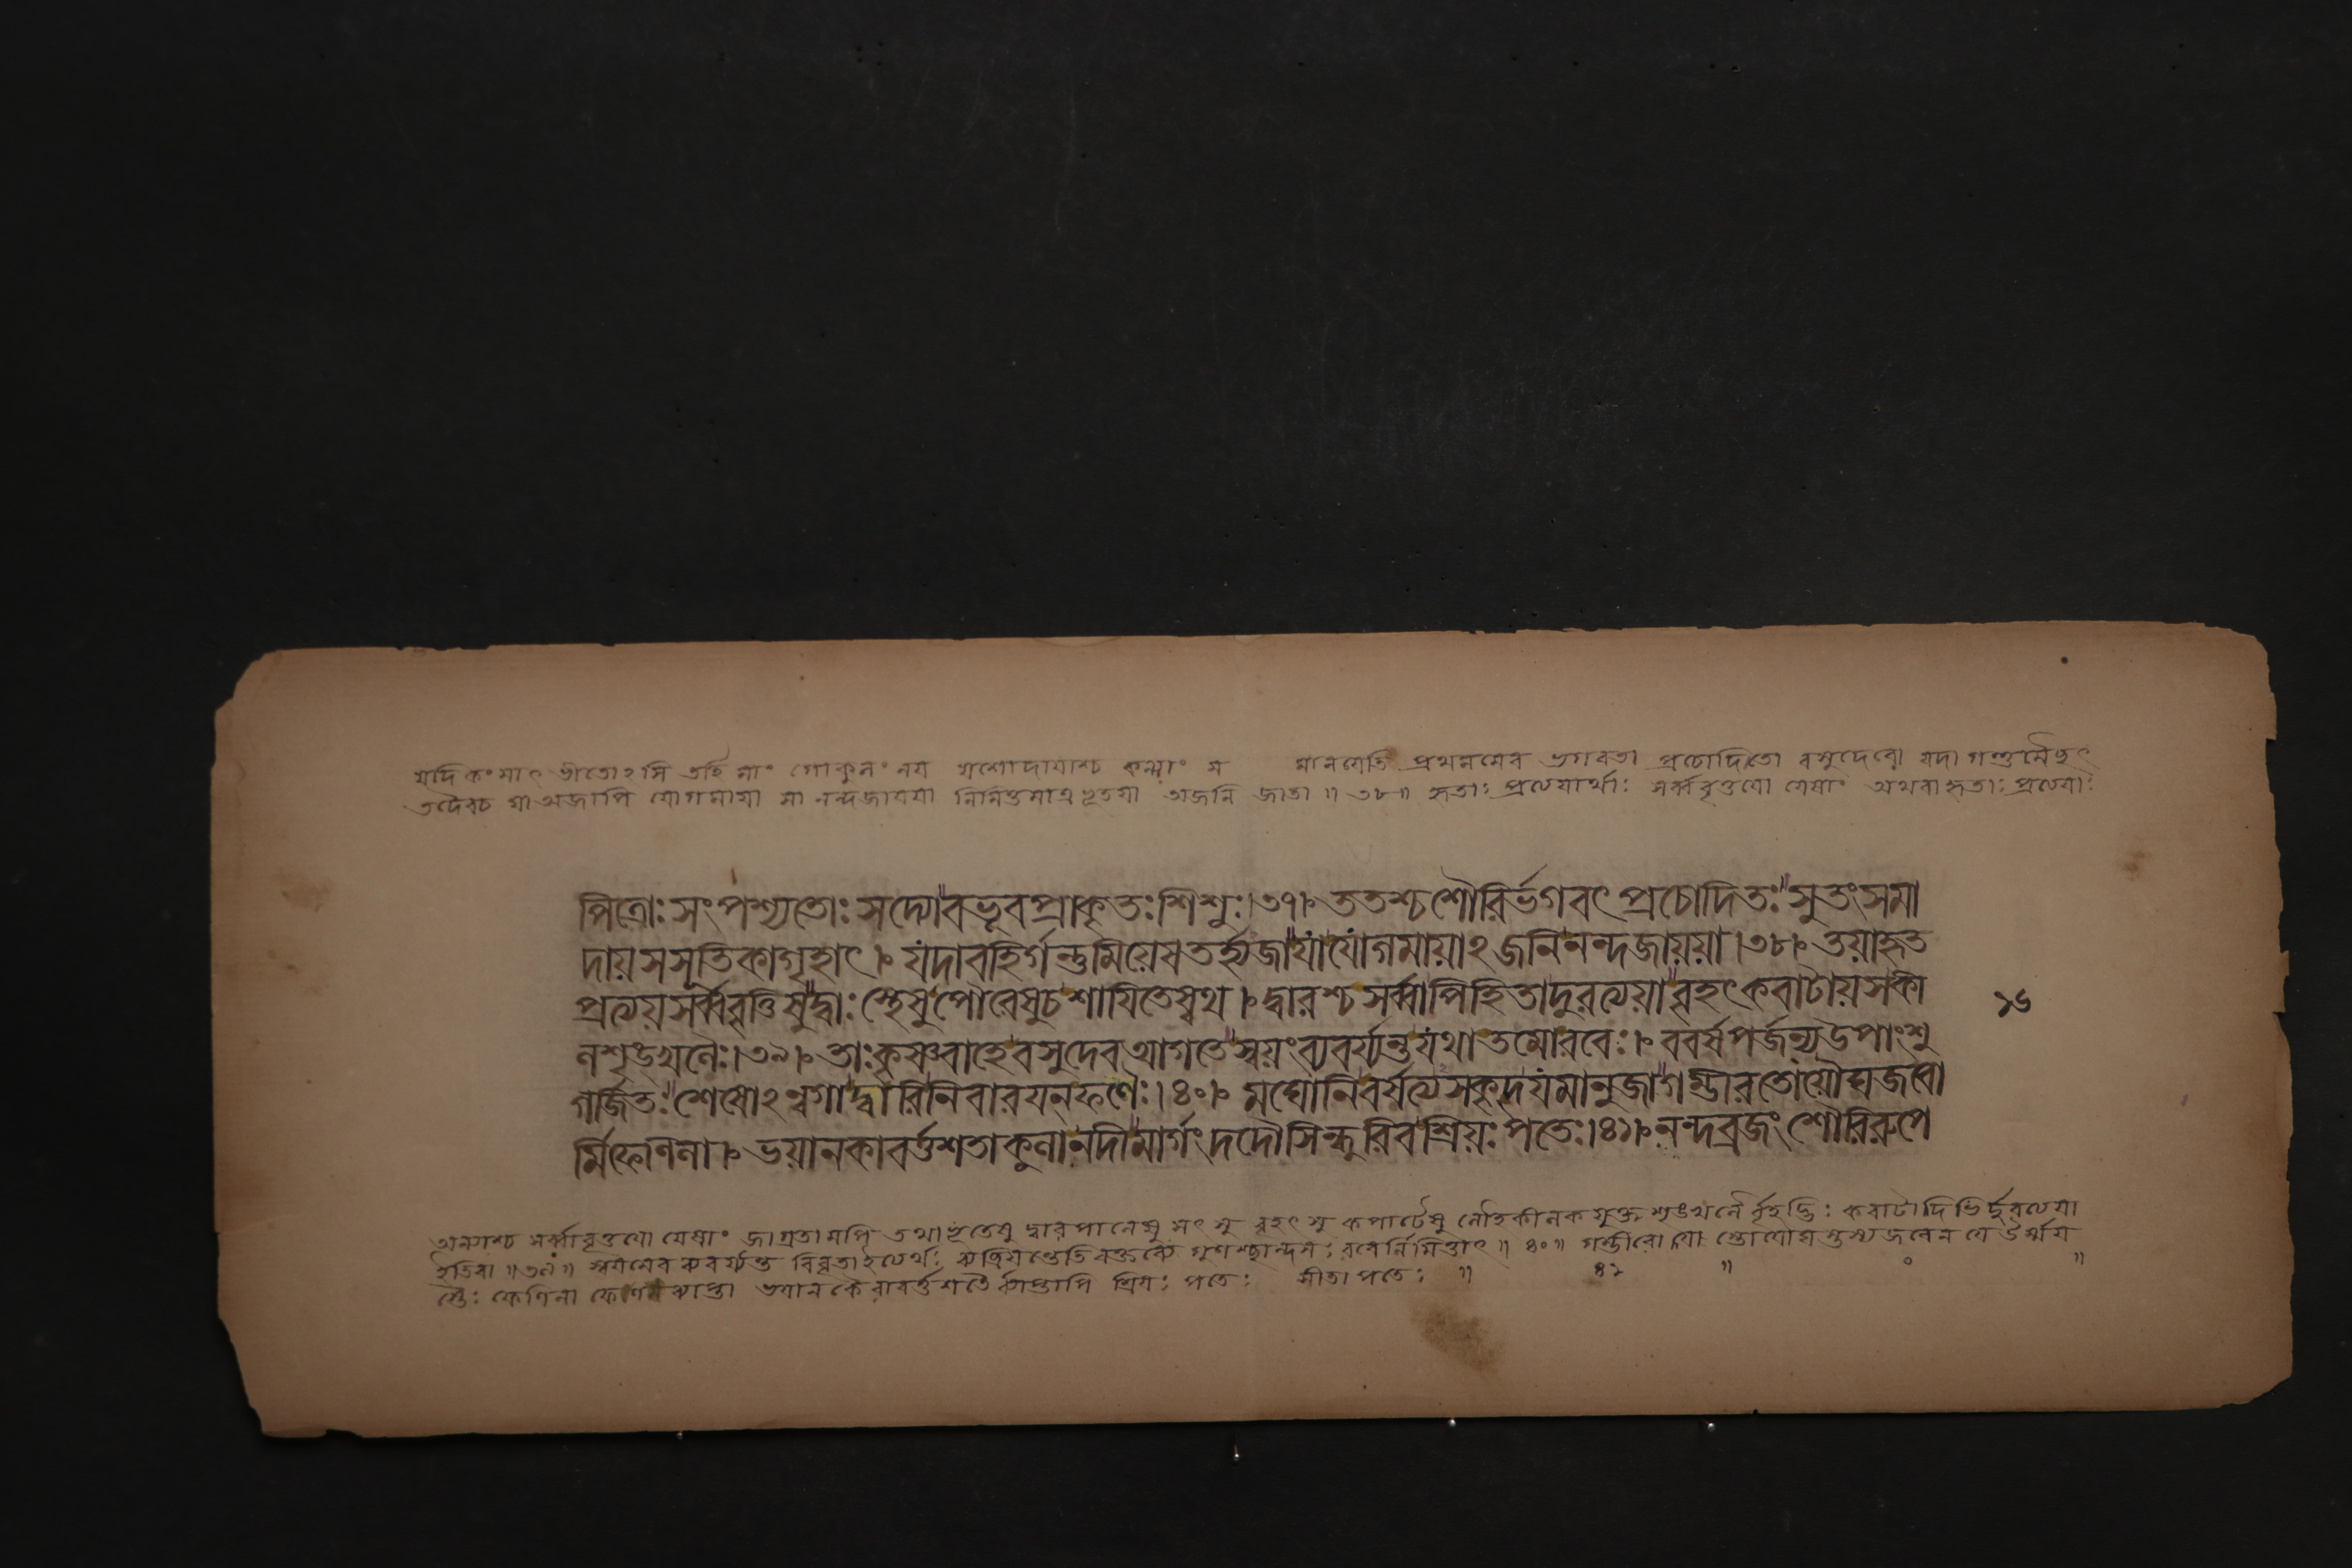 যদি কংসাৎ ভীতোঽসি তর্হি মাং গোকুলং নয় যশোদায়াশ্চ কন্যাং স মানয়েতি প্রথমমেব ভগবতা প্রচোদিতো বসুদেবো যদা গন্তুমৈছৎ
তদৈবচ যা অজাপি যোগমায়া সা নন্দজায়য়া নিমিত্তমাত্রভূতয়া অজনি জাতা ॥ ৩৮॥ হৃতাঃ প্রত্যয়ার্থাঃ সর্ব্ববৃত্তয়ো যেষাং অথবা হৃতাঃ প্রত্যয়াঃ
পিত্রোঃ সংপশ্যতোঃ সদ্যোবভূবপ্রাকৃতঃ শিশুঃ।৩৭। ততশ্চশৌরির্ভগবৎ প্রচোদিতঃ সুতংসমা
দায়সসূতিকাগৃহাৎ। যদাবহির্গন্তুমিয়েষতর্হ্যজাযাযোগমায়াঽজনিনন্দজায়য়া।৩৮। তয়াহৃত
প্রত্যয়সর্ব্ববৃত্তিষুদ্বাঃস্থেষুপৌরেষুচশায়িতেষ্বথ। দ্বারশ্চসর্ব্বাপিহিতাদুরত্যয়াবৃহৎকবাটায়সকী
লশৃঙখলৈঃ।৩৯। তাঃকৃষ্ণবাহেবসুদেবআগতেস্বয়ংব্যবর্য্যন্তযথাতমোরবেঃ। ববর্ষপর্জন্যউপাংশু
গর্জিতঃ শেষোঽন্বগাদ্বারিনিবারয়নফণৈঃ।৪০। মঘোনিবর্ষত্যসকৃদযমানুজাগম্ভীরতোয়ৌঘজবো
র্মিফেনিলা। ভয়ানকাবর্ত্তশতাকুলানদীমার্গংদদৌসিন্ধুরিবশ্রিয়ঃ পতেঃ।৪১। নন্দব্রজং শৌরিরুপে
১৬
সর্ব্বাবৃত্তয়ো যেষাং জাগ্রতামপি তথাভূতেষু দ্বারপালেষু সৎসু বৃহৎসু কপাটেষু লৌহকীলকযুক্তশৃঙখলৈ র্বৃহদ্ভিঃ কবাটাদিভি র্দুরত্যয়া
ইতিবা ॥৩৯॥ স্বয়মেব ব্যবর্য্যন্ত বিবৃতাইত্যর্থঃ রবের্নিমিত্তাৎ ॥ ৪০॥ গম্ভীরো যো
ফেনিলা ভয়ানকৈ রাবর্ত্তশতৈ র্ব্যাপ্তাপি শ্রিয়ঃ পতেঃ সীতাপতেঃ ॥ ৪১ ॥